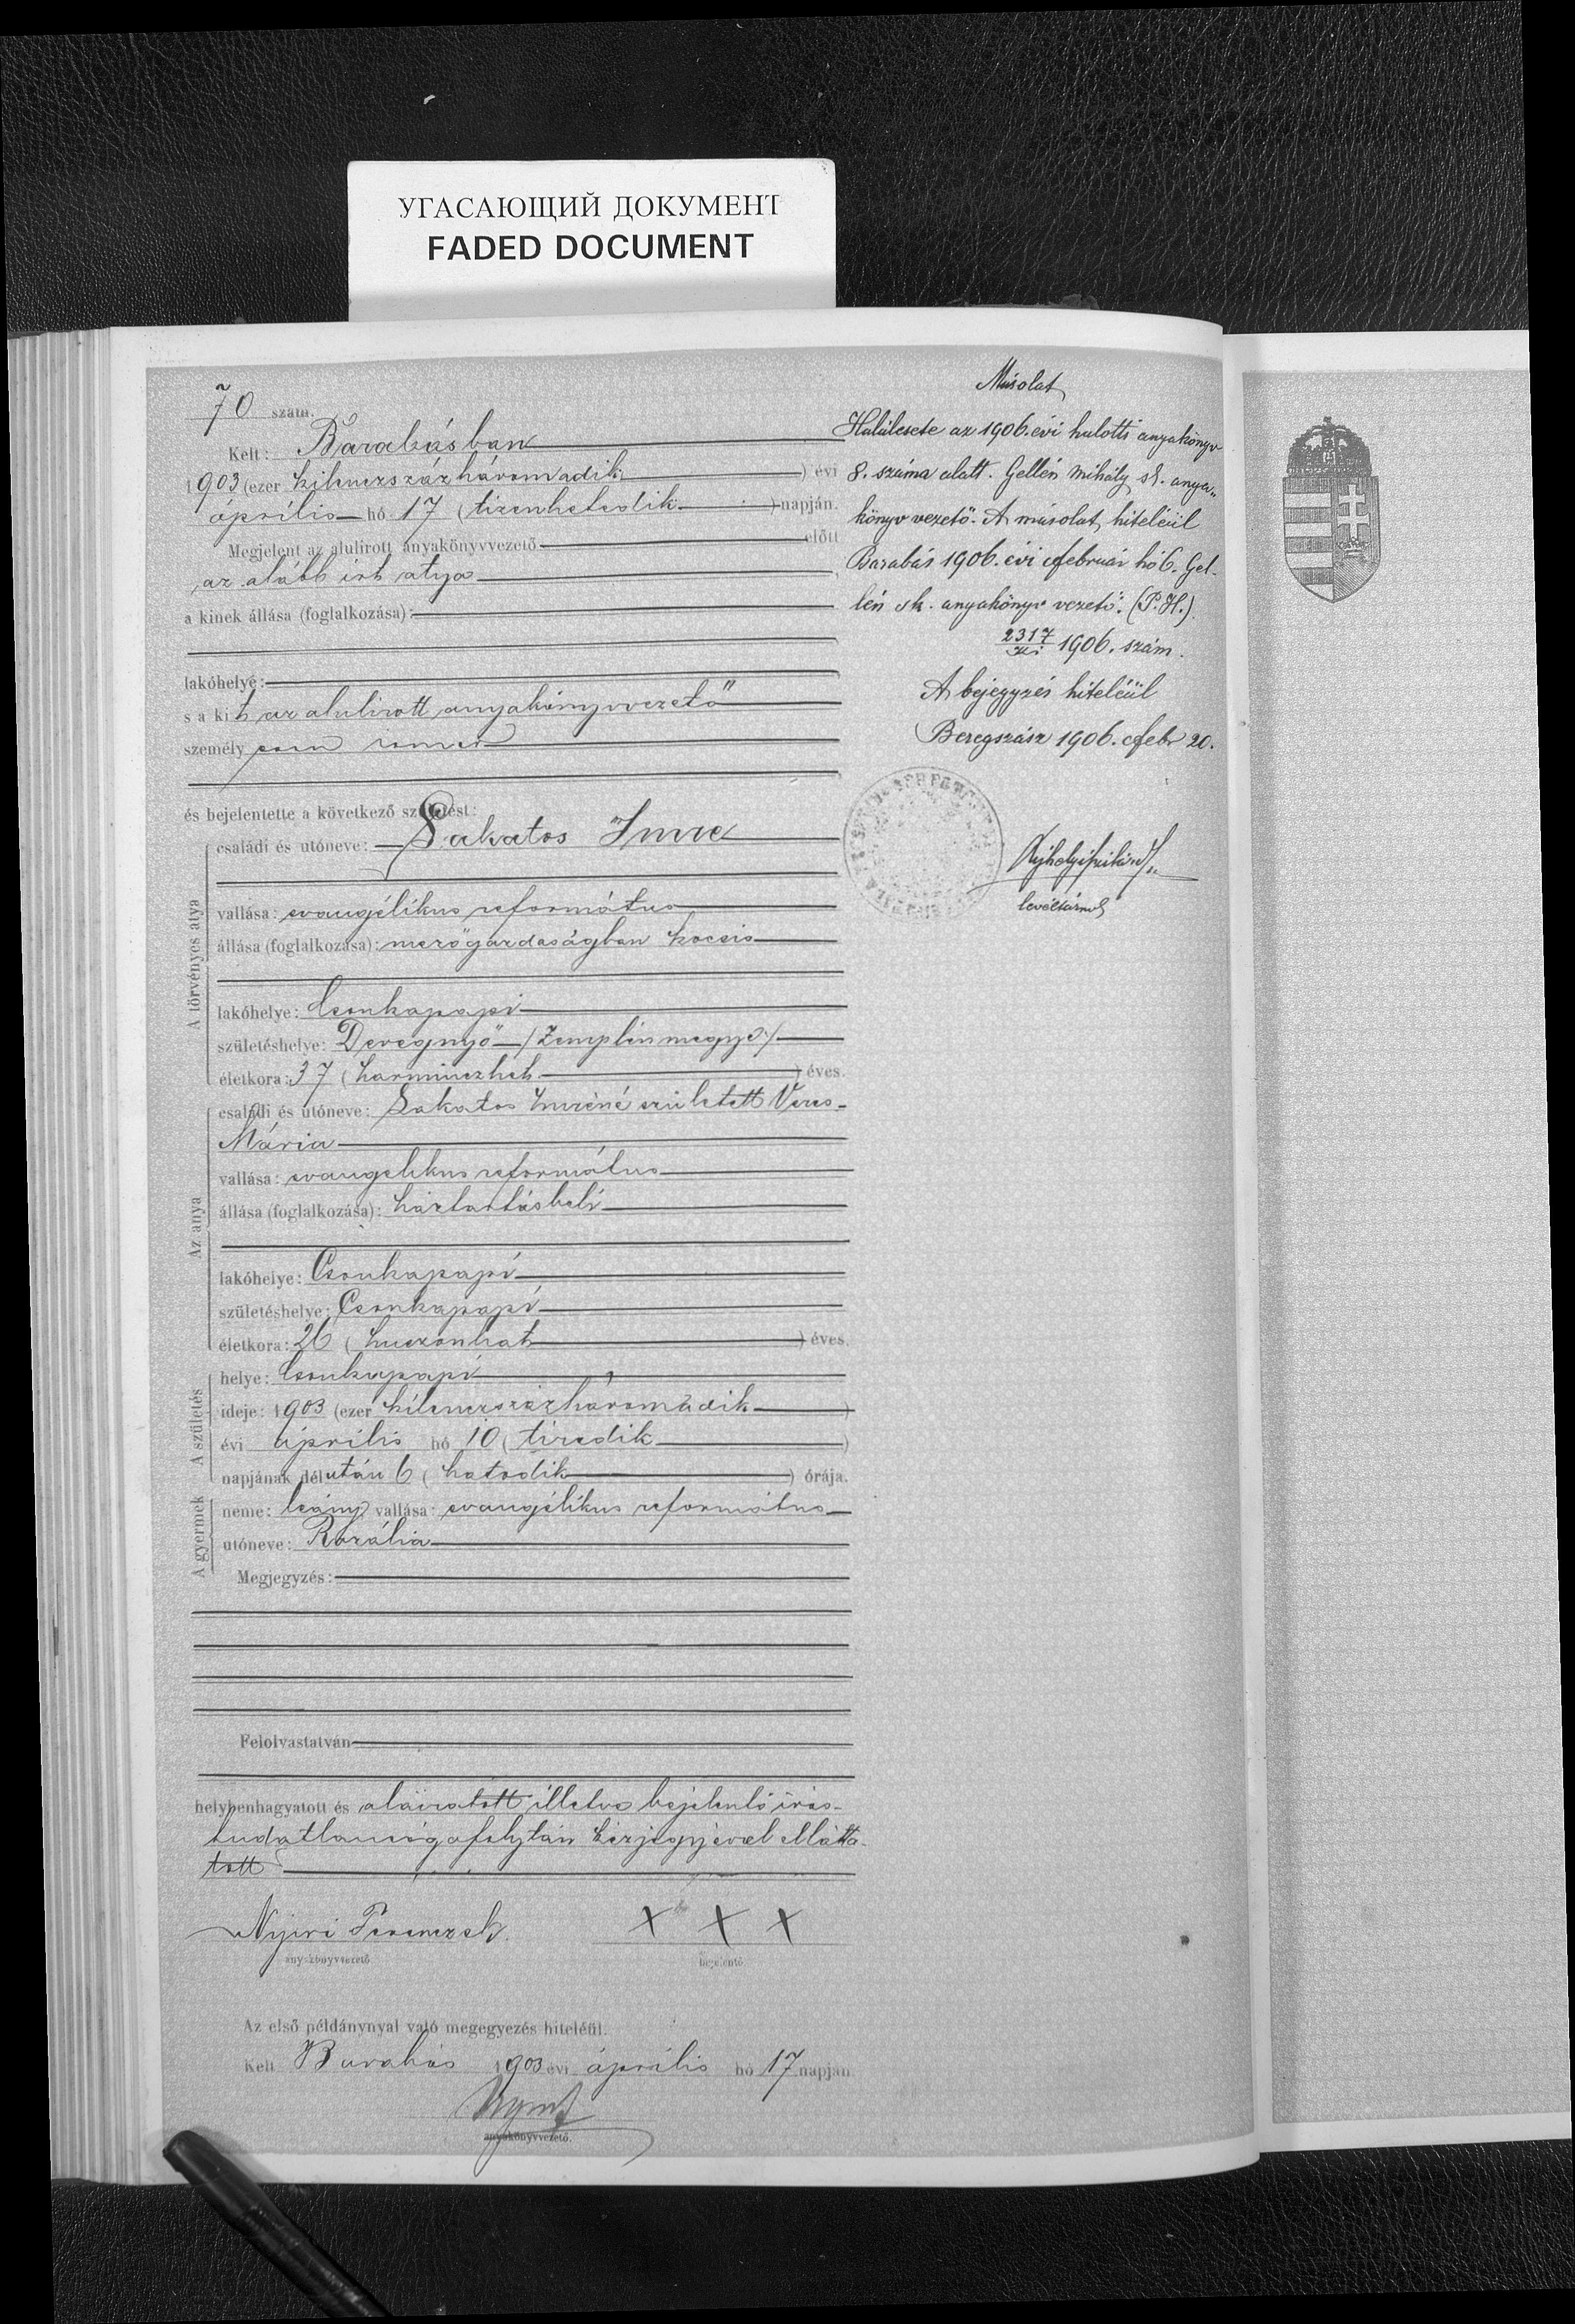 УГАСАЮЩИЙ ДОКУМЕНТ
FADED DOCUMENT
70 szám.
Kelt: Barabásban
1903 (ezer kilenczszázháromadik) évi
április hó 17 (tizenhetedik) napján.
Megjelent az alulirott anyakönyvvezető előtt
az alább irt atya,
a kinek állása (foglalkozása):
lakóhelye:
s a kit az alulirott anyakönyvvezető
személyesen ismer
és bejelentette a következő születést:
A törvényes atya
családi és utóneve: Lakatos Imre
vallása: evangélikus református
állása (foglalkozása): mezőgazdaságban kocsis
lakóhelye: Csonkapapi
születéshelye: Deregnyő (Zemplén megye)
életkora: 37 (harminczhét) éves.
Az anya
családi és utóneve: Lakatos Imréné született Veres
Mária
vallása: evangelikus református
állása (foglalkozása): háztartásbeli
lakóhelye: Csonkapapi
születéshelye: Csonkapapi
életkora: 26 (huszonhat) éves.
A születés
helye: Csonkapapi
ideje: 1903 (ezer kilenczszázháromadik)
évi április hó 10 (tizedik)
napjának délután 6 (hatodik) órája.
A gyermek
neme: leány vallása: evangélikus református
utóneve: Rozália
Megjegyzés:
Felolvastatván
helybenhagyatott és aláiratott illetve bejelentő irás-
tudatlansága folytán kézjegyével ellátta-
tott
Nyiri Ferencz sk. X X X
anyakönyvvezető bejelentő
Az első példánynyal való megegyezés hiteléül.
Kelt Barabás 1903 évi április hó 17 napján
anyakönyvvezető.
Másolat
Halálesete az 1906. évi halotti anyakönyv
8. száma alatt. Gellén Mihály sk. anya-
könyvvezető. A másolat hiteléül
Barabás 1906. évi február hó 6. Gel-
lén sk. anyakönyvvezető. (P.H.)
2317 1906. szám.
A bejegyzés hiteléül
Beregszász 1906. febr 20.
levéltárnok